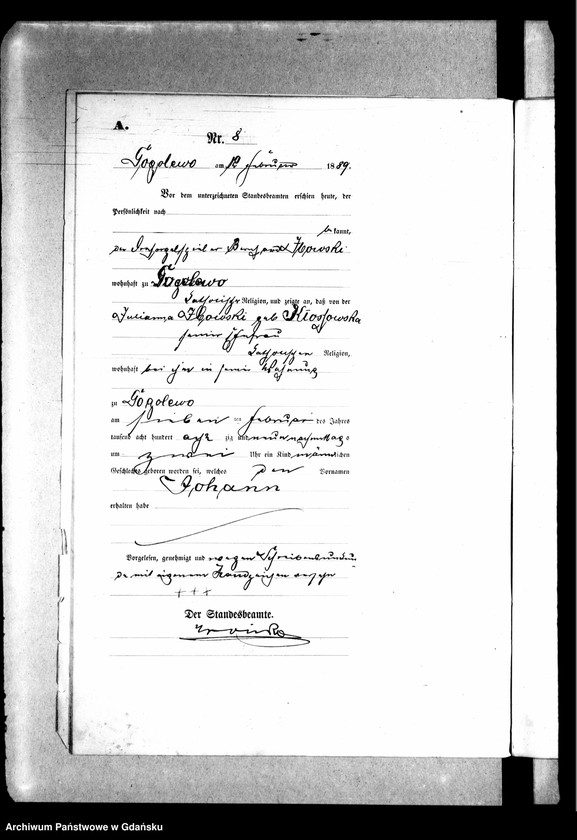 A.
Nr. 8
Gogolewo am 12 Februar 1889.
Vor dem unterzeichneten Standesbeamten erschien heute, der
Persönlichkeit nach
bekannt,
der Bernhardt
wohnhaft zu Gogolewo
katholischer Religion, und zeigte an, daß von der
Julianna geb Kiossowska
seiner Ehefrau
katholischen Religion,
wohnhaft bei ihm in seiner Wohnung
zu Gogolewo
am sieben ten Februar des Jahres
tausend acht hundert acht zig und neun nachmittags
um zwei Uhr ein Kind männlichen
Geschlechts geboren worden sei, welches den Vornamen
Johann
erhalten habe
Vorgelesen, genehmigt und wegen
mit eigenem Handzeichen versehn
+++
Der Standesbeamte.
Archiwum Państwowe w Gdańsku